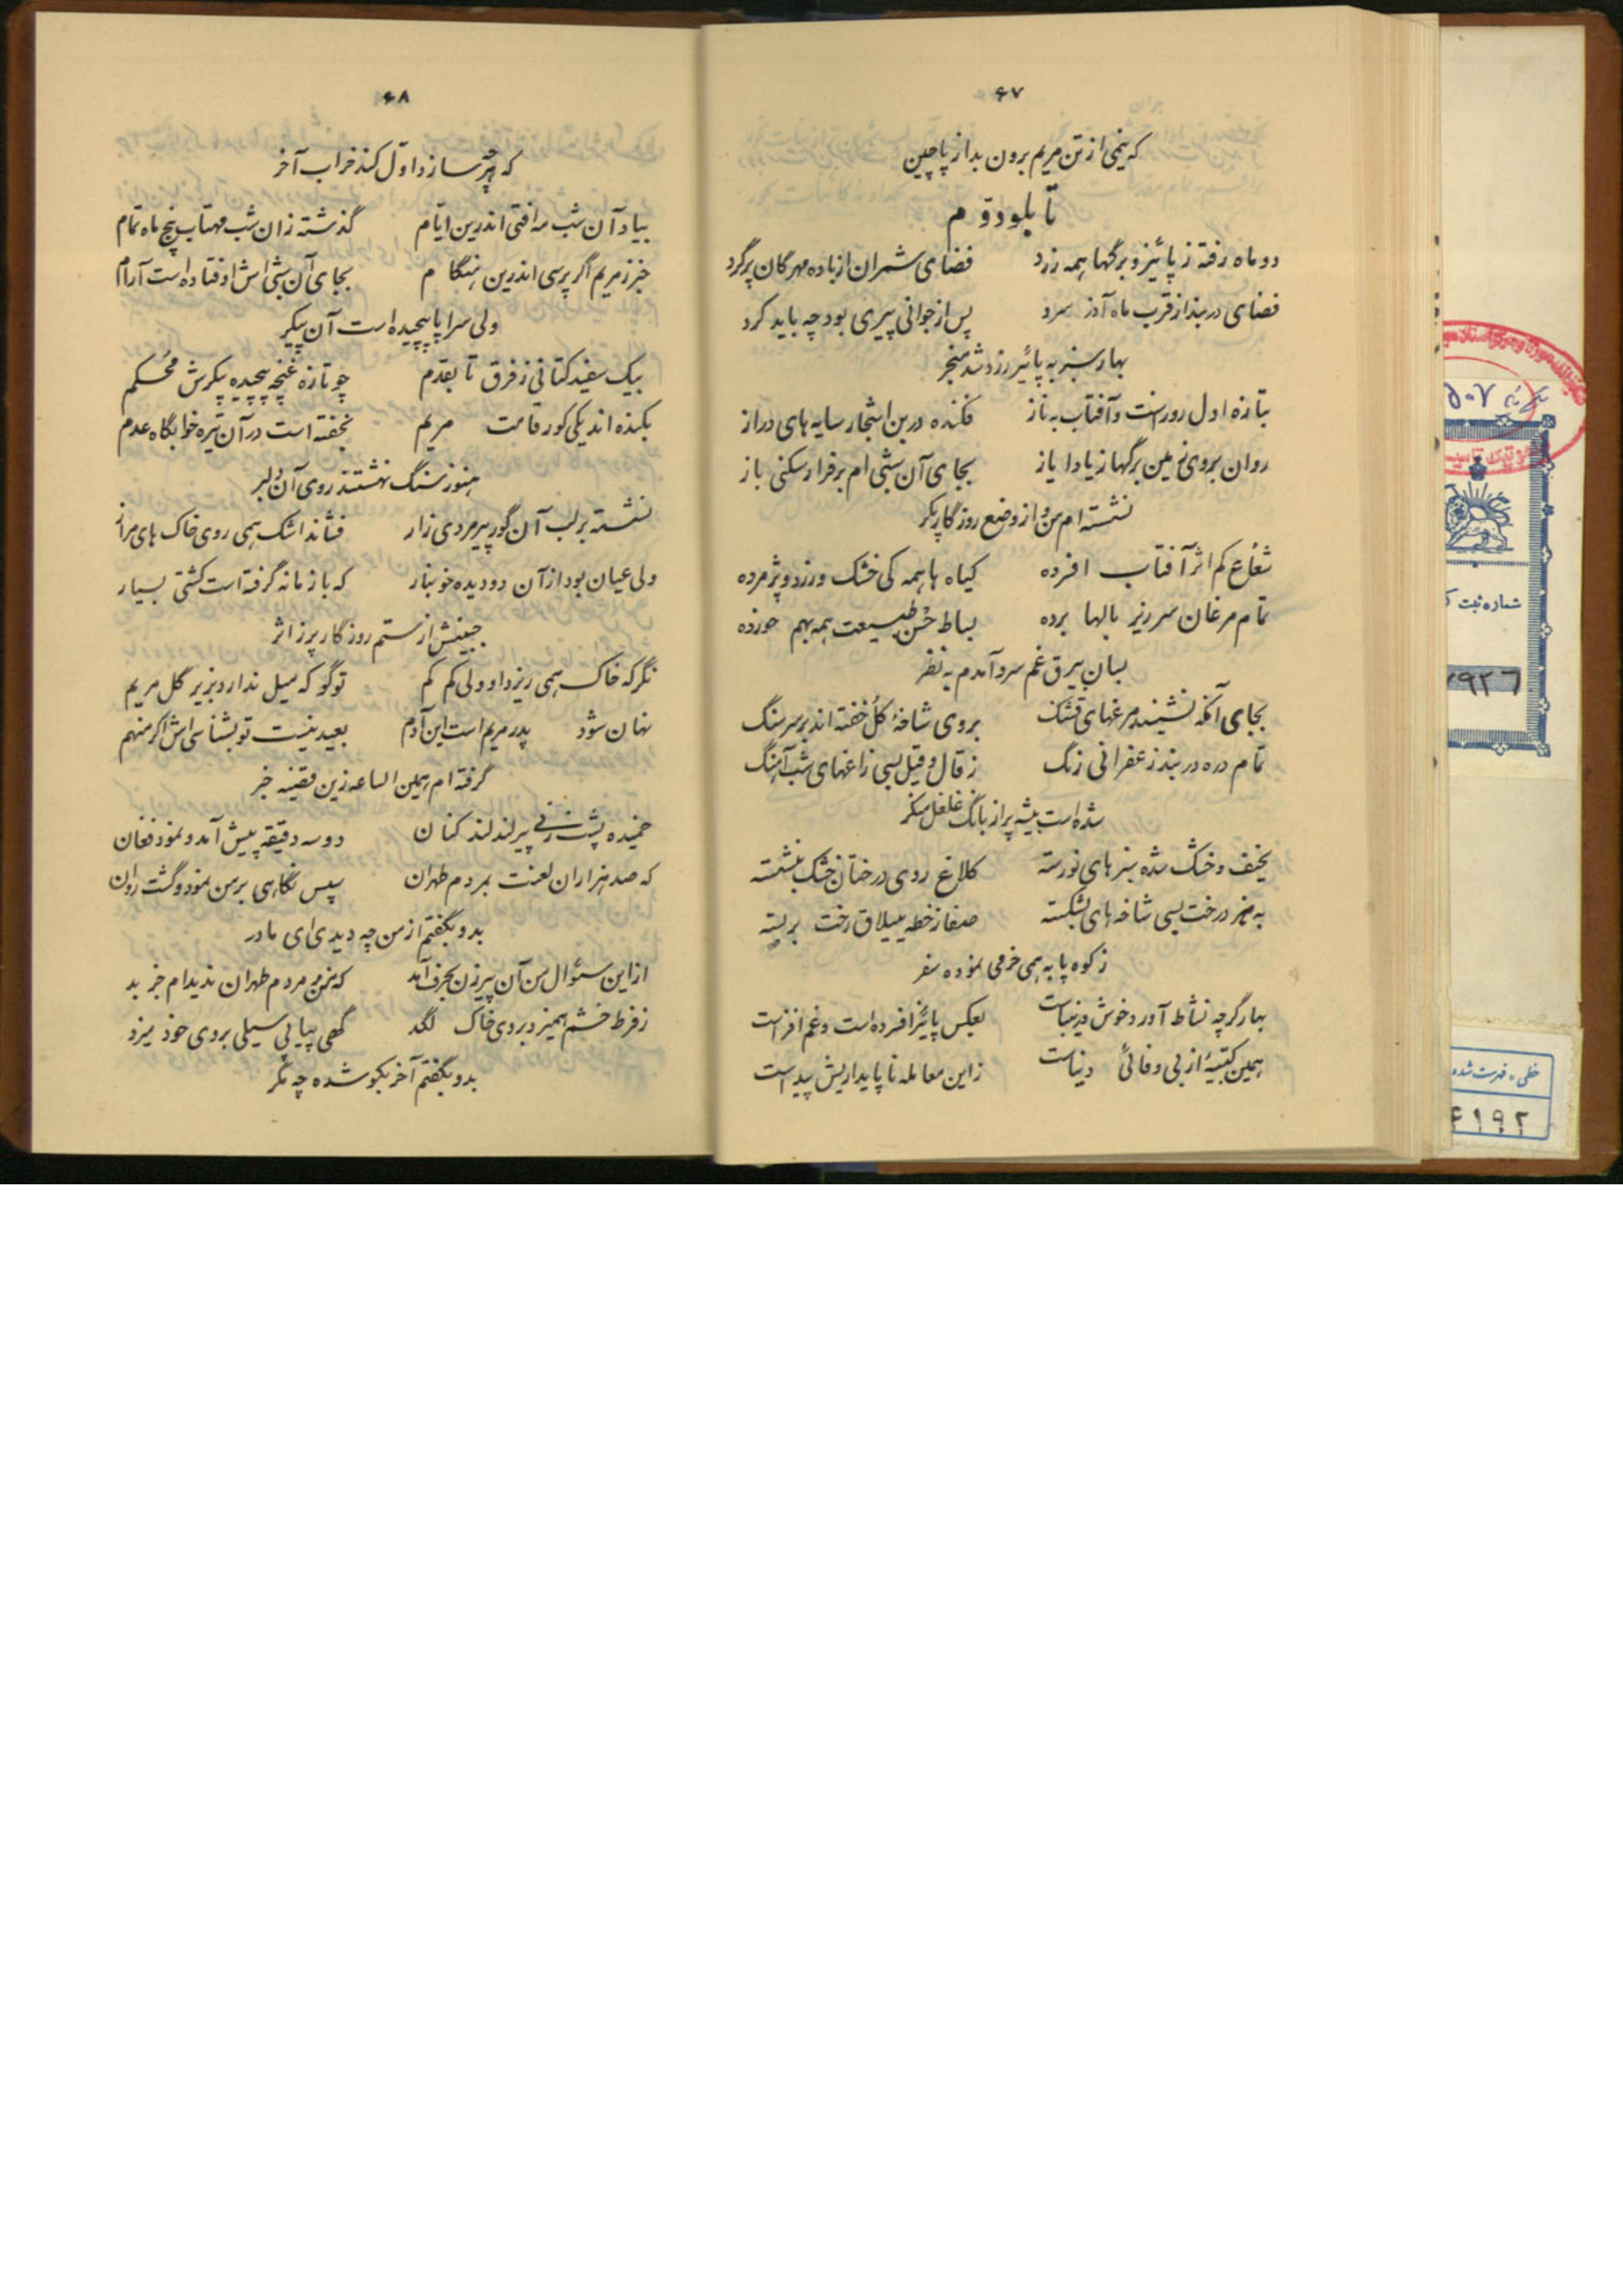 ۶۷
که نیمی از تن مریم برون بد از پاچین
تابلو دوم
دو ماه رفته ز پائیز و برگها همه زرد فضای شمران از باده مهرگان پر گرد
فضای دربند از قرب ماه آذر سرد پس از جوانی پیری بود چه باید کرد
بهار سبز به پائیز زرد شد منجر
بتازه اول روز است و آفتاب به ناز فکنده در بن اشجار سایه های دراز
روان بروی زمین برگها ز باد ایاز بجای آن شبی ام بر فراز سنگی باز
نشسته ام من و از وضع روزگار پکر
شعاع کم اثر آفتاب افسرده گیاه ها همه کی خشک و زرد و پژمرده
تمام مرغان سر زیر بالها برده بساط حُسن طبیعت همه بهم خورده
بسان بیرق غم سرو آمدم به نظر
بجای آنکه نشینند مرغهای قشنگ بروی شاخهٔ گُل خفته اند بر سر سنگ
تمام دره دربند زعفرانی رنگ ز قال و قیل بسی زاغهای شب آهنگ
شده است بیشه پر از بانگ غلغل منکر
نحیف و خشک شده سبزهای نورسته کلاغ روی درختان خشک بنشسته
به هر درخت بسی شاخه های بشکسته صفا ز خطه ییلاق رخت بر بسته
ز کوه پا به همی خرمی نموده سفر
بهار گرچه نشاط آور و خوش و زیباست بعکس پائیز افسرده است و غم افزاست
همین کتیبهٔ از بی وفائی دنیاست زاین معامله ناپایداریش پیداست
۶۸
که هرچه سازد اوّل کند خراب آخر
بیاد آن شب مه افتی اندرین ایّام گذشته زان شب مهتاب پنج ماه تمام
خبر ز مریم اگر پرسی اندرین هنگام بجای آن شبی اش اوفتاده است آرام
ولی سراپا پیچیده است آن پیکر
بیک سفید کتانی ز فرق تا بقدم چو تازه غنچه پیچیده پیکرش مُحکم
بکنده اند یکی گور قامت مریم بخفته است در آن تیره خوابگاه عدم
هنوز سنگ نهشتند روی آن دلبر
نشسته بر لب آن گور پیر مردی زار فشاند اشک همی روی خاک های مزار
ولی عیان بود از آن دو دیده خونبار که با زمانه گرفته است کشتی بسیار
جبینش از ستم روزگار پر ز اثر
نگر که خاک همی ریزد او ولی کم کم تو گو که میل ندارد بزیر گل مریم
نهان شود پدر مریم است این آدم بعید نیست تو بشناسی اش اگر منهم
گرفته ام همین الساعه زین قضیه خبر
خمیده پشت زنی پیر لند لند کنان دو سه دقیقه پیش آمد و نمود فغان
که صد هزاران لعنت بمردم طهران سپس نگاهی بر من نمود و گشت روان
بدو بگفتم از من چه دیدی ای مادر
از این سئوال من آن پیر زن بحرف آمد که من ز مردم طهران ندیدام جز بد
ز فرط خشم همیزد بروی خاک لگد گهی پیاپی سیلی بروی خود میزد
بدو بگفتم آخر بگو شده چه مگر
شماره ثبت
خطی، فهرست شده
۴۱۹۲